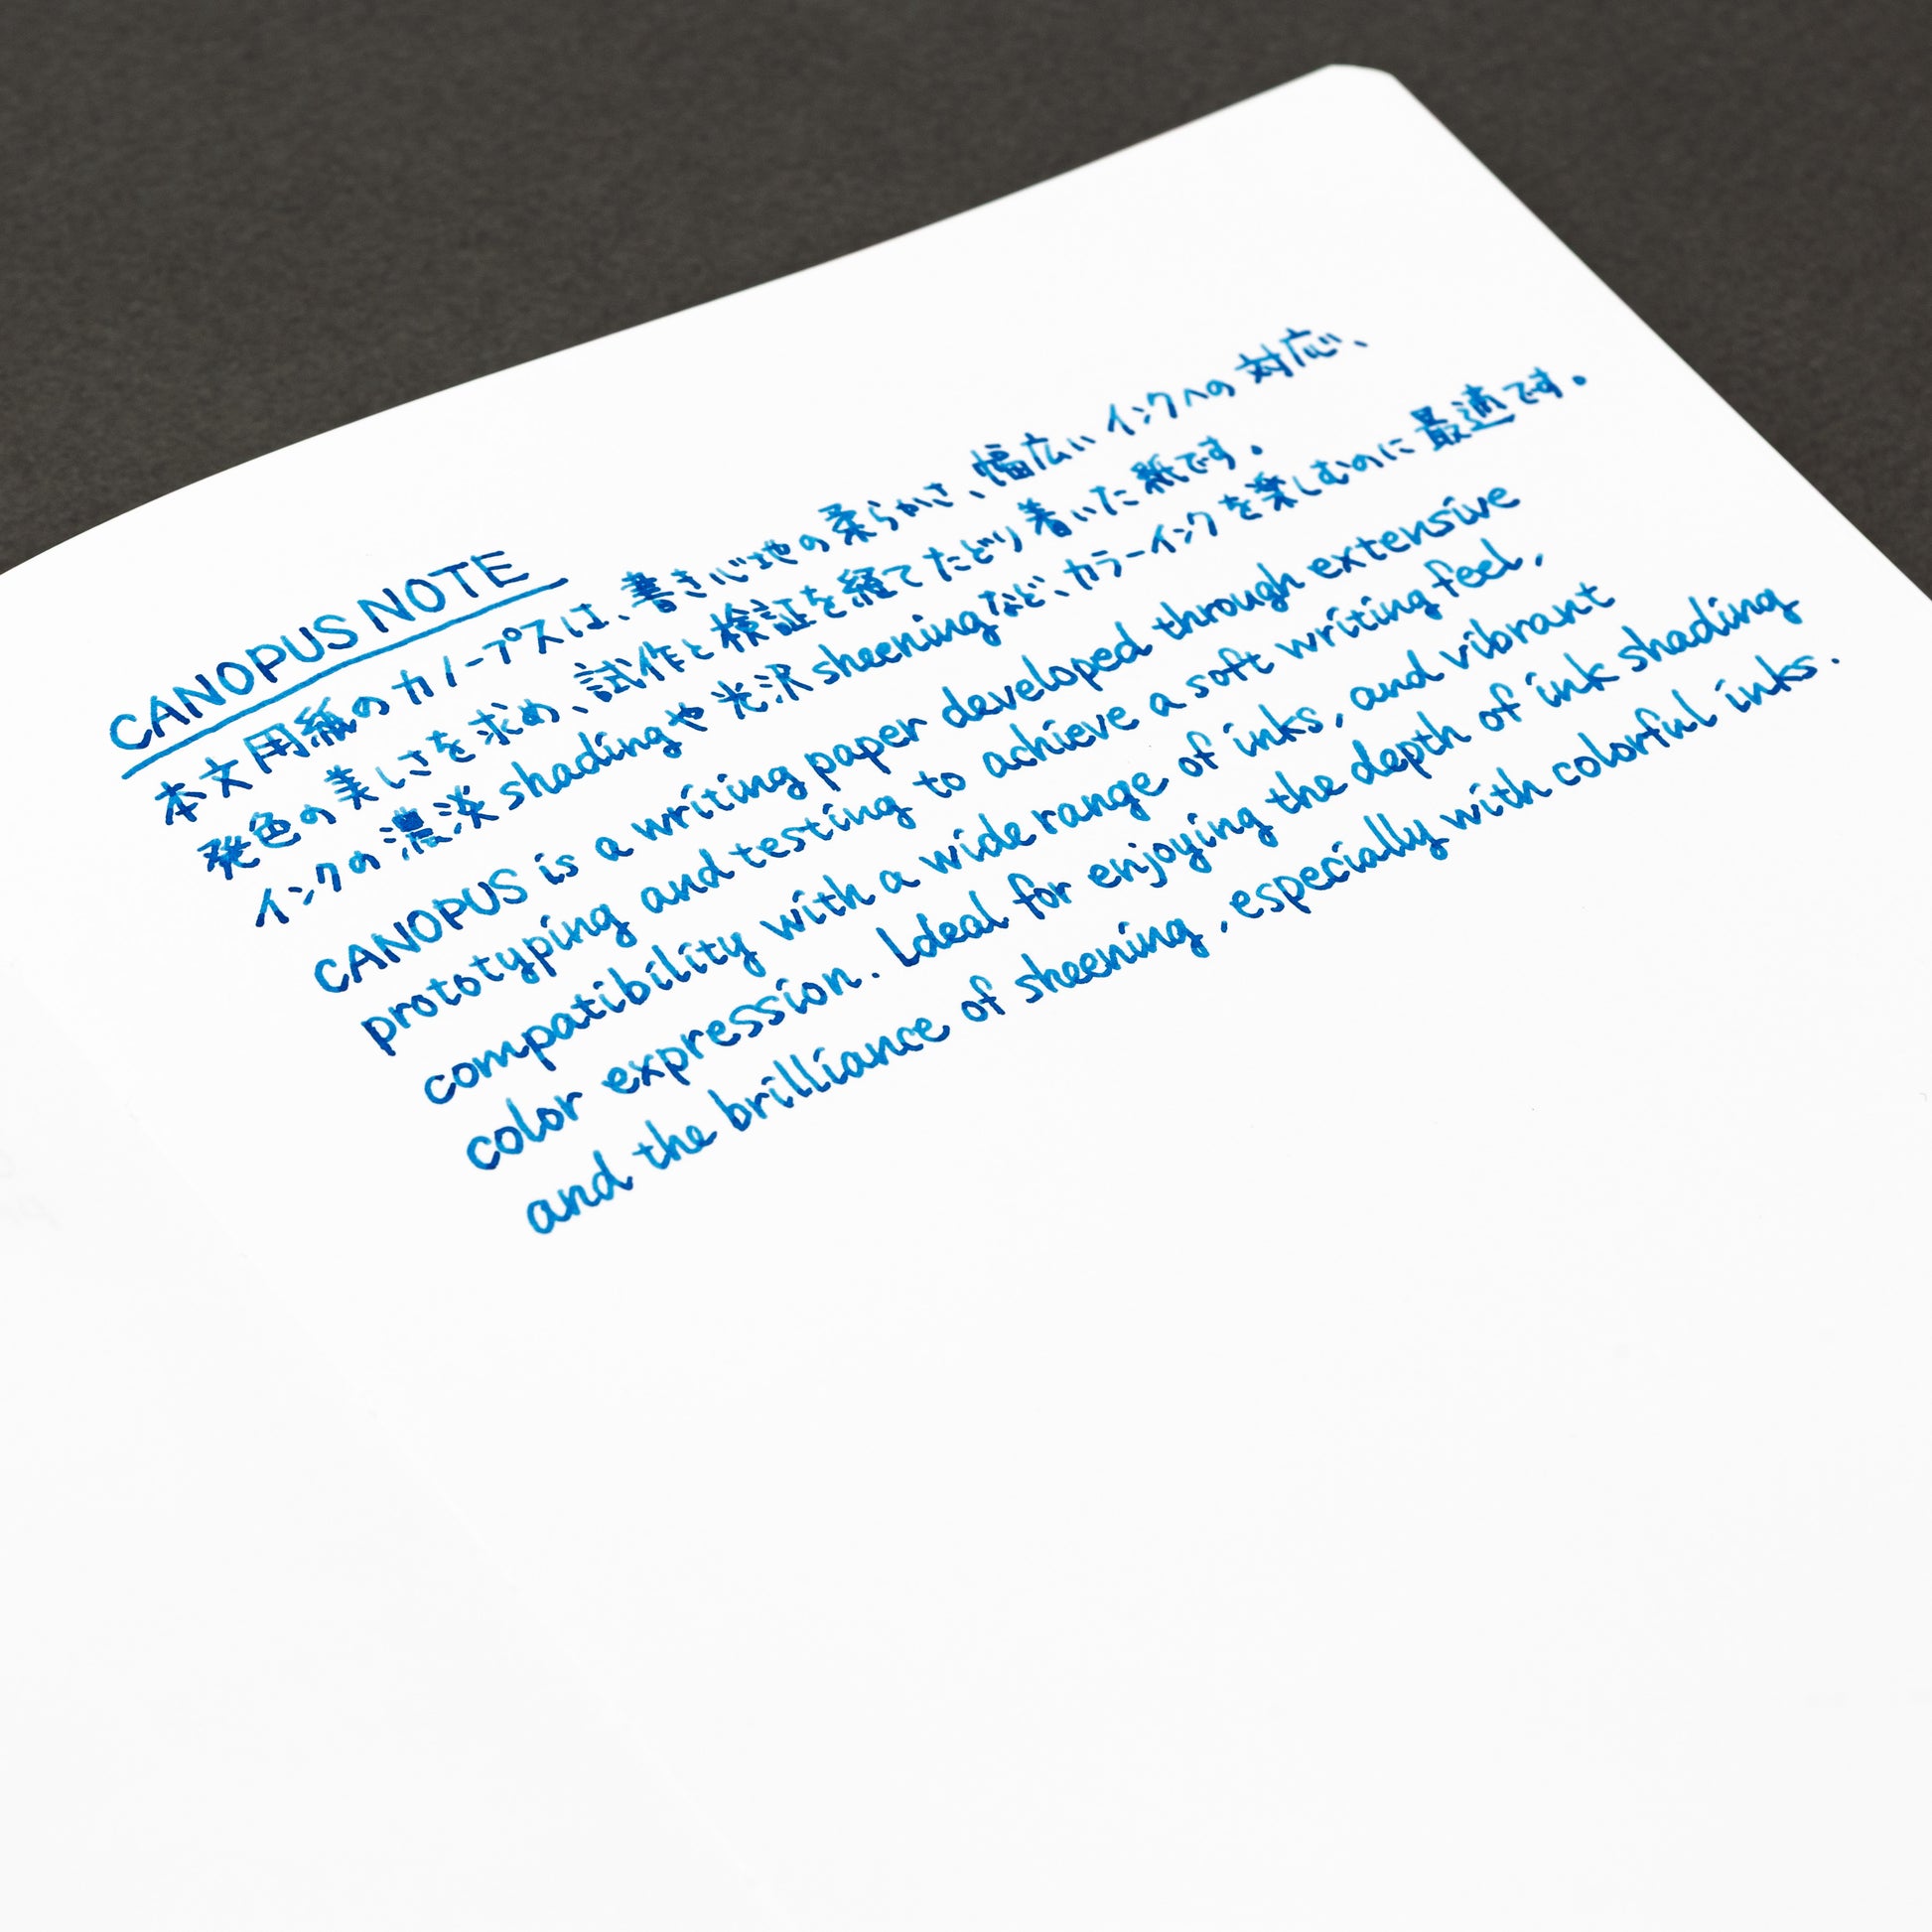 CANOPUS NOTE
本文用紙のカノープスは、書き心地の柔らかさ、幅広いインクへの対応、
発色の美しさを求め、試作と検証を経てたどり着いた紙です。
インクの濃淡shadingや光沢sheeningなど、カラーインクを楽しむのに最適です。
CANOPUS is a writing paper developed through extensive
prototyping and testing to achieve a soft writing feel,
compatibility with a wide range of inks, and vibrant
color expression. Ideal for enjoying the depth of ink shading
and the brilliance of sheening, especially with colorful inks.